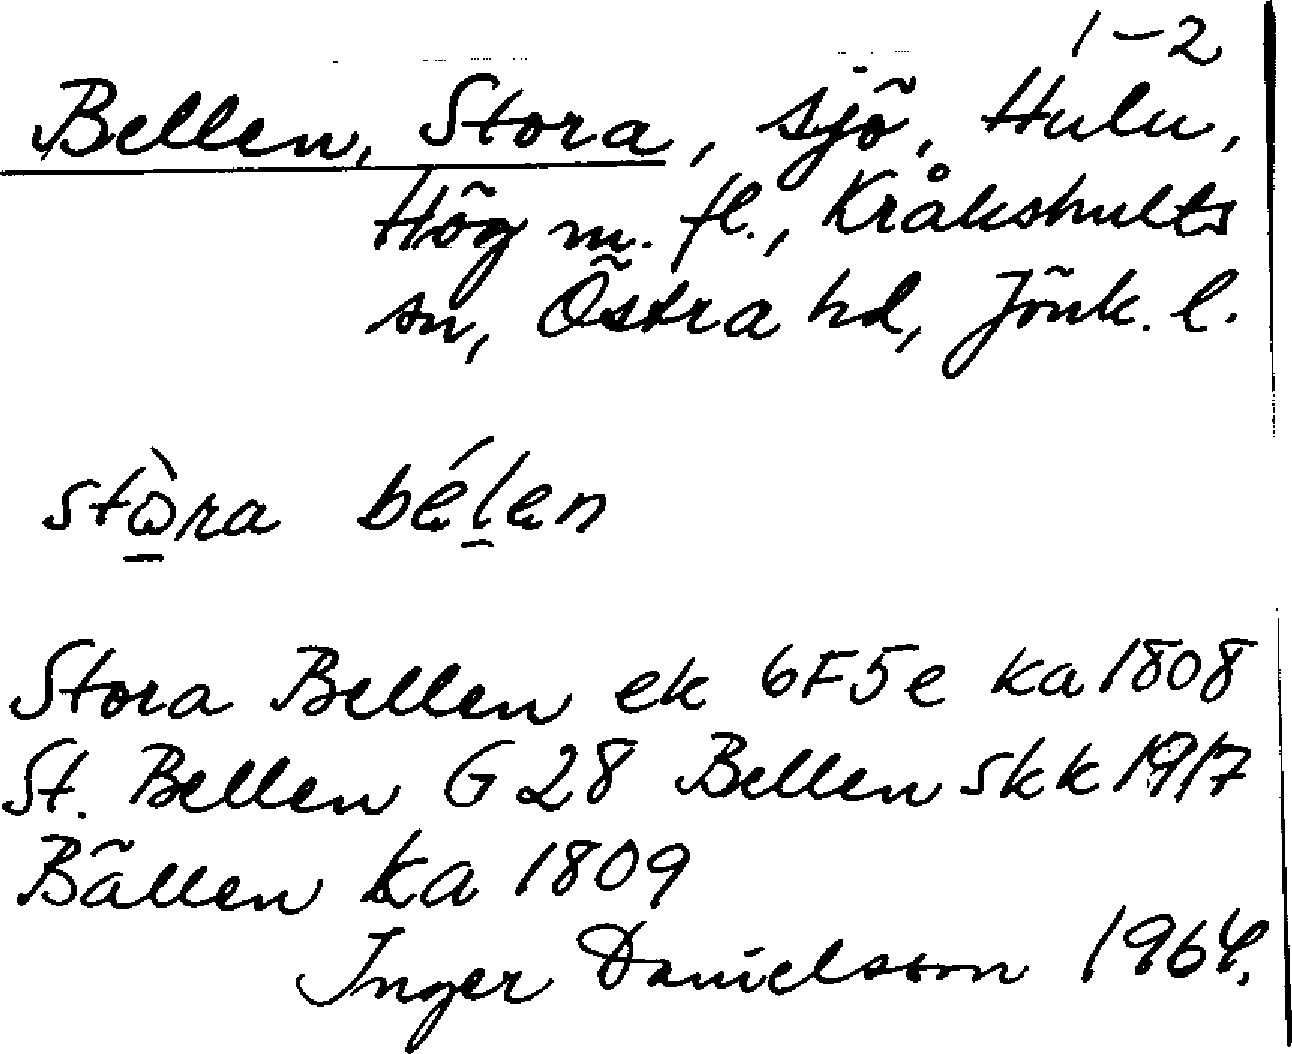 1–2
Bellen, Stora, sjö, Hulu,
Hög m. fl., Kråkshults
sn, Östra hd, Jönk. l.
stò̱ra béḻen
Stora Bellen ek 6F5e ka 1808
St. Bellen G 28 Bellen skk 1917
Bällen ka 1809
Inger Danielsson 1964.